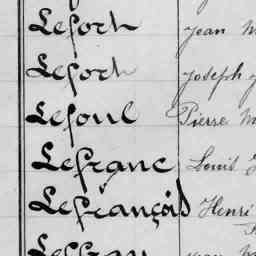 Lefort Jean
Lefort Joseph
Lefoul Pierre
Lefranc Louis
Lefrançois Henri